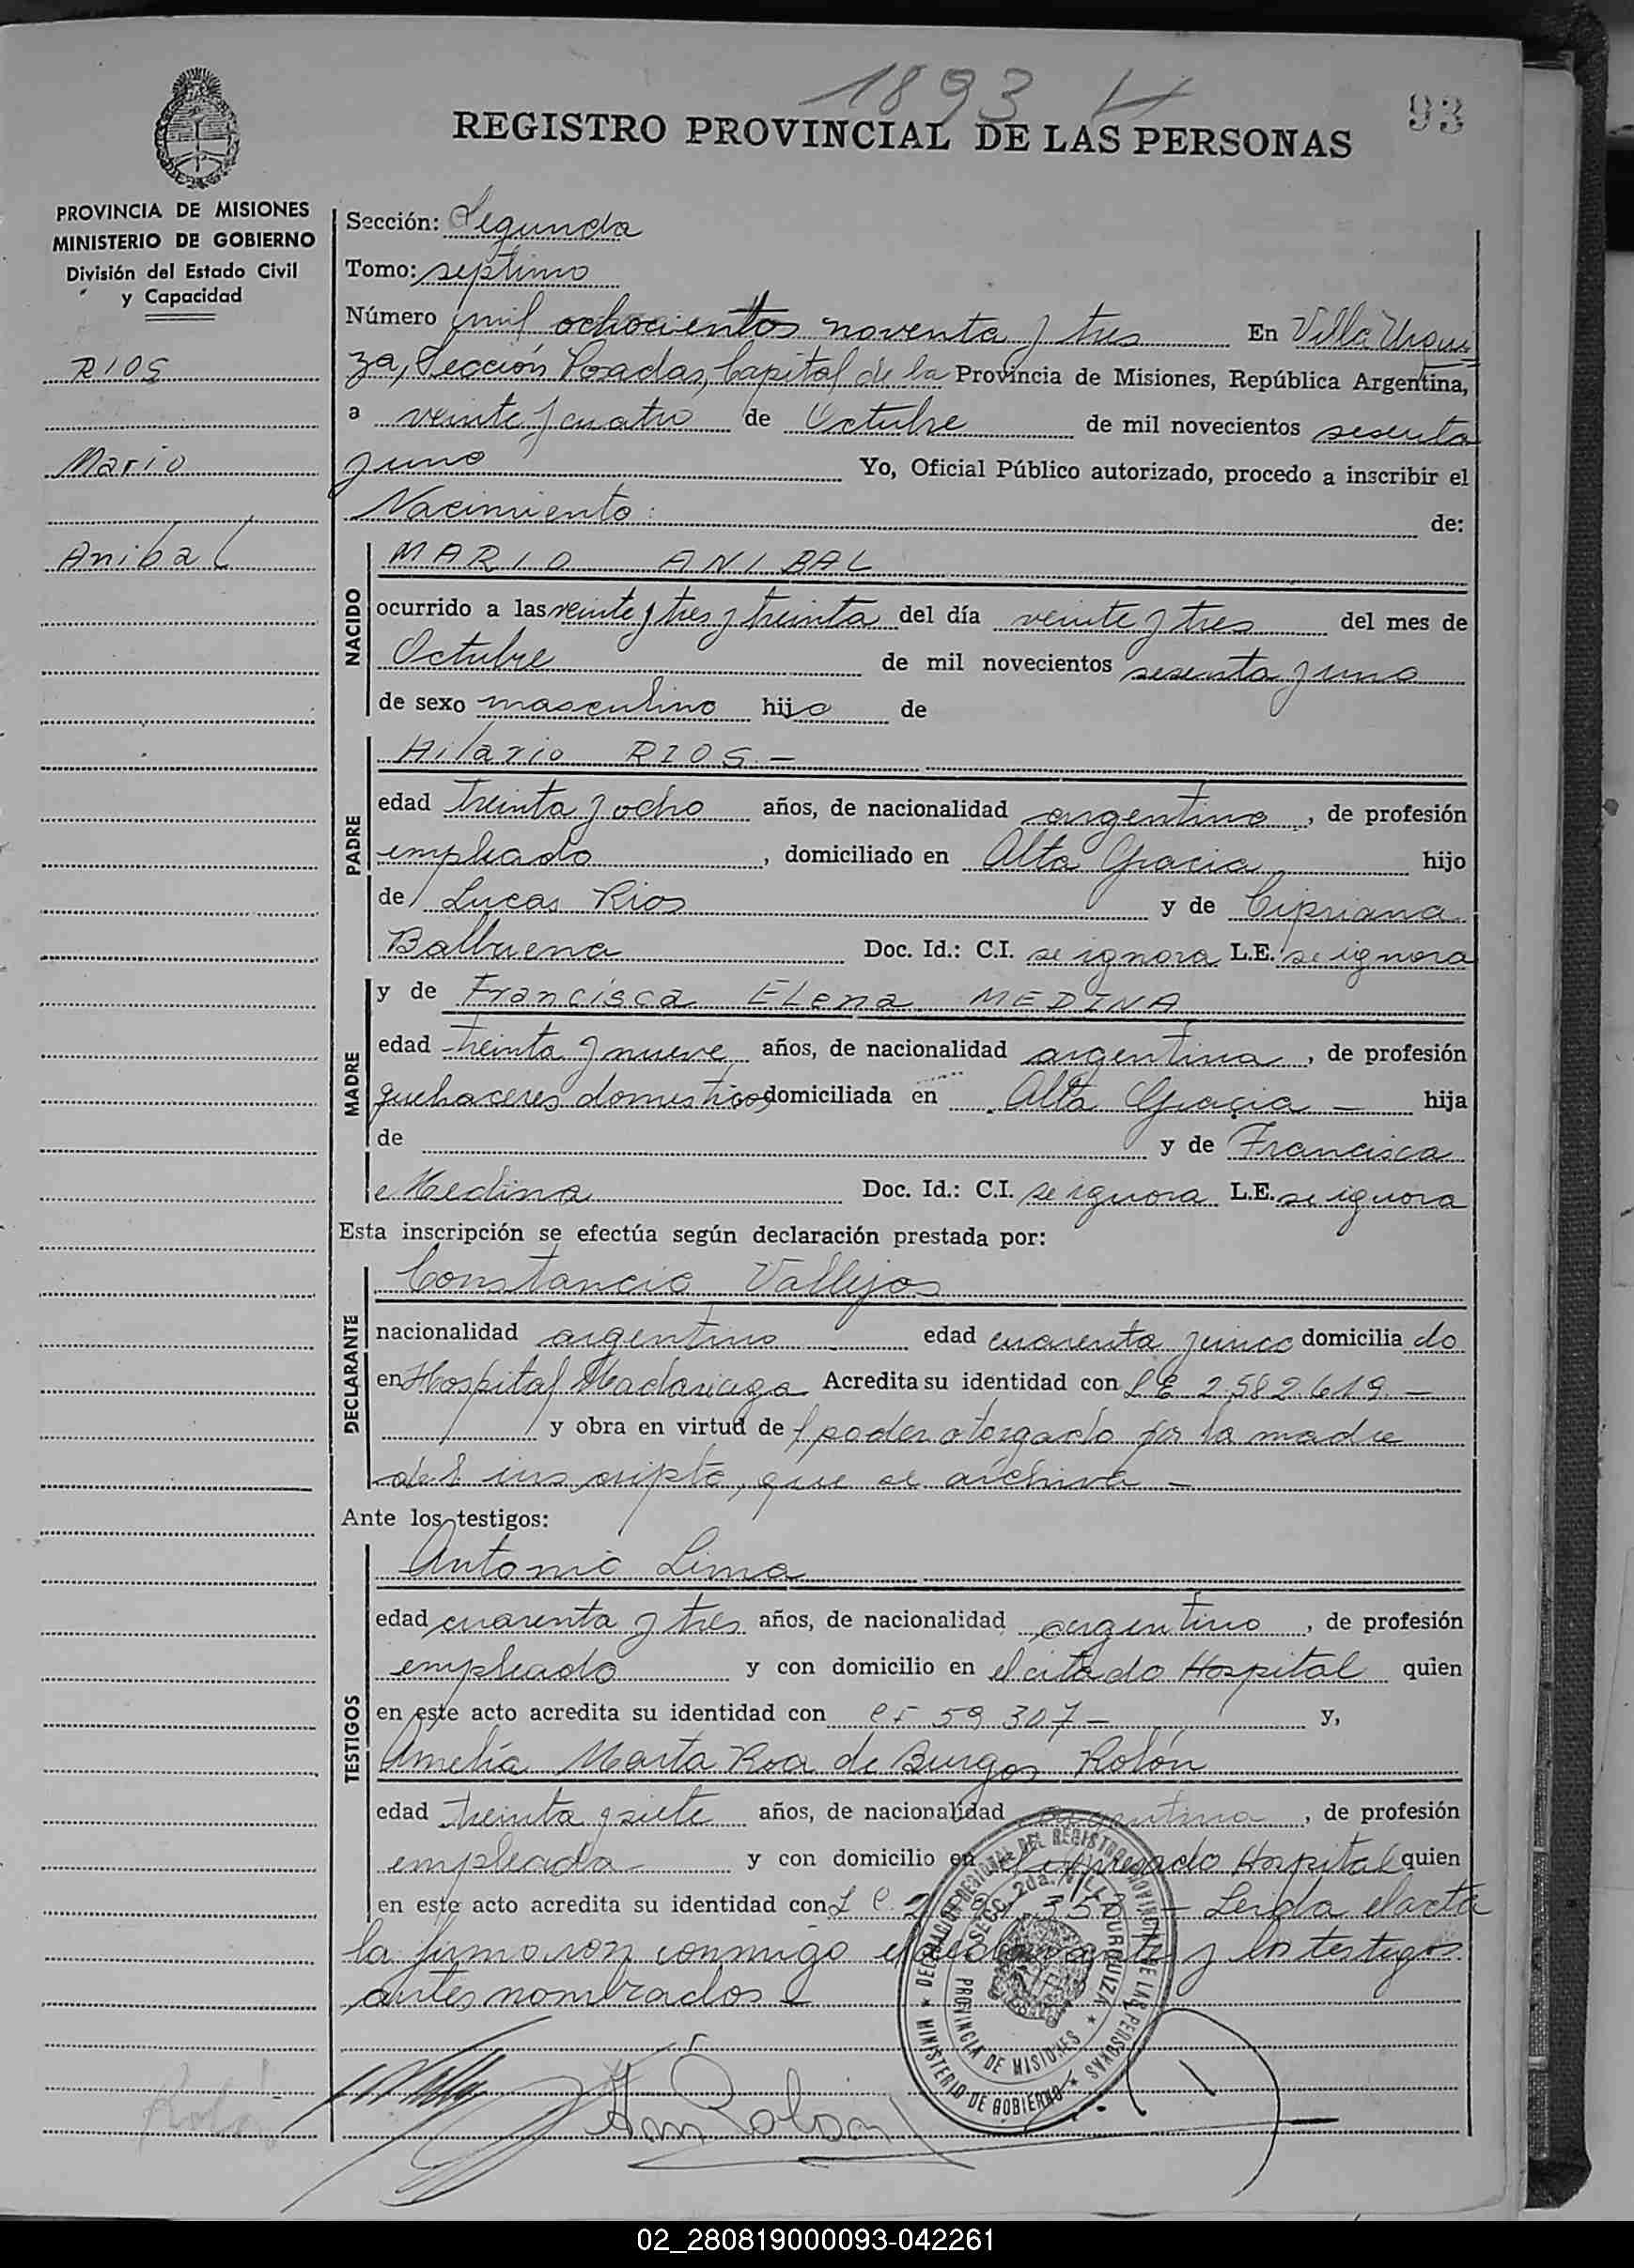 1893
93
REGISTRO PROVINCIAL DE LAS PERSONAS
PROVINCIA DE MISIONES
MINISTERIO DE GOBIERNO
División del Estado Civil
y Capacidad
RIOS
Mario
Anibal
Sección: Segunda
Tomo: septimo
Número mil ochocientos noventa y tres En Villa Urqui-
za, Sección Posadas, Capital de la Provincia de Misiones, República Argentina,
a veinte y cuatro de Octubre de mil novecientos sesenta
y uno Yo, Oficial Público autorizado, procedo a inscribir el
Nacimiento: de:
NACIDO
MARIO ANIBAL
ocurrido a las veinte y tres y treinta del día veinte y tres del mes de
Octubre de mil novecientos sesenta y uno
de sexo masculino hijo de
PADRE
Hilario RIOS.—
edad treinta y ocho años, de nacionalidad argentino, de profesión
empleado, domiciliado en Alta Gracia hijo
de Lucas Rios y de Cipriana
Balbuena Doc. Id.: C.I. se ignora L.E. se ignora
MADRE
y de Francisca Elena MEDINA
edad treinta y nueve años, de nacionalidad argentina, de profesión
quehaceres domesticos domiciliada en Alta Gracia — hija
de y de Francisca
Medina Doc. Id.: C.I. se ignora L.E. se ignora
Esta inscripción se efectúa según declaración prestada por:
DECLARANTE
Constancio Vallejos
nacionalidad argentino edad cuarenta y cinco domiciliado
en Hospital Madariaga Acredita su identidad con LE 2.582.619 —
y obra en virtud de poder otorgado por la madre
del inscripto, que se archiva —
Ante los testigos:
TESTIGOS
Antonio Lima
edad cuarenta y tres años, de nacionalidad argentino, de profesión
empleado y con domicilio en el citado Hospital quien
en este acto acredita su identidad con 59.307 — y,
Amelia Marta Roa de Burgos Rolón
edad treinta y siete años, de nacionalidad argentina, de profesión
empleada y con domicilio en el expresado Hospital quien
en este acto acredita su identidad con L C 2 — Leida el acta
la firmaron conmigo el declarante y los testigos
antes nombrados —
DELEGACION REGIONAL DEL REGISTRO PROVINCIAL DE LAS PERSONAS
MINISTERIO DE GOBIERNO
SECC. 2da. VILLA URQUIZA
PROVINCIA DE MISIONES
Rolón
02_280819000093-042261